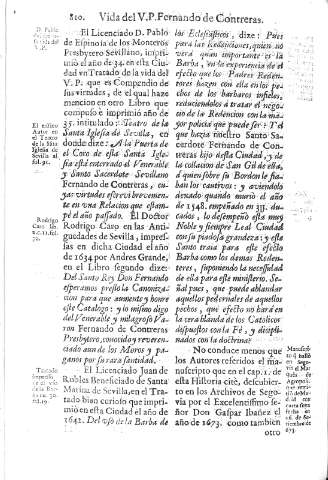 810. Vida del V.P. Fernando de Contreras.
El Licenciado D. Pablo
de Espinosa de los Monteros
Presbytero Sevillano, impri-
mió el año de 34. en esta Ciu-
dad vn Tratado de la vida del
V. P. que es Compendio de
sus virtudes, de el qual haze
mencion en otro Libro que
compuso è imprimiò año de
35. intitulado: Teatro de la
Santa Iglesia de Sevilla, en
donde dize: A la Puerta de
el Coro de esta Santa Igle-
sia està enterrado el Venerable
y Santo Sacerdote Sevillano
Fernando de Contreras, cu-
yas virtudes escrevì brevemen-
te en vna Relacion que estam-
pè el año passado. El Doctor
Rodrigo Caro en las Anti-
guedades de Sevilla, impres-
sas en dicha Ciudad el año
de 1634 por Andres Grande,
en el Libro segundo dize:
Del Santo Rey Don Fernando
esperamos presto la Canoniza-
cion para que aumente y honre
este Catalogo: y lo mismo digo
del Venerable y milagroso Va-
ron Fernando de Contreras
Presbytero, conocido y reveren-
ciado aun de los Moros y pa-
ganos por su rara santidad.
El Licenciado Juan de
Robles Beneficiado de Santa
Marina de Sevilla, en el Tra-
tado bien curioso que impri-
miò en esta Ciudad el año de
1642. Del vso de la Barba de
El mismo
Autor en
el Teatro
de la Sta
Iglesia de
Sevilla al
fol.
Rodrigo
Caro lib.
Tratado
los Eclesiasticos, dize: Pues
para las Redenciones, quien no
verà quan importante es la
Barba, en la experiencia de el
efecto que los Padres Reden-
tores hazen con ella en los pe-
chos de los barbaros infieles,
reduciendolos à tratar el nego-
cio de la Redencion con la ma-
yor policia que puede ser? Y el
que hazia nuestro Santo Sa-
cerdote Fernando de Con-
treras hijo desta Ciudad, y de
la collacion de San Gil de ella,
à quien sobre su Bordon le fia-
ban los cautivos: y aviendolo
dexado quando muriò el año
de 1548. empeñado en 355. du-
cados, lo desempeñò esta muy
Noble y siempre Leal Ciudad
con su piadosa grandeza: y este
Santo traia para este efecto
Barba como los demas Reden-
tores, suponiendo la necessidad
de ella para este ministerio. Se-
ñal pues, que puede ablandar
aquellos pedernales de aquellos
pechos, que el efecto no harà en
la cera blanda de los Catolicos
dispuestos con la Fè, y discipli-
nados con la doctrina?
No conduce menos que
los Autores referidos el ma-
nuscripto que en el cap. 11. de
esta Historia citè, descubier-
to en los Archivos de Sego-
via por el Excelentissimo se-
ñor Don Gaspar Ibañez el
año de 1673. como tambien
otro
Manuscri-